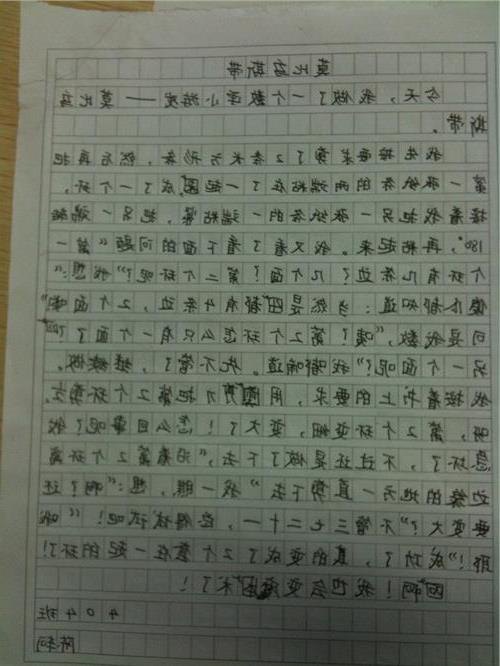 莫比乌斯带
今天，我做了一个数学小游戏——莫比乌
斯带。
我先按要求剪了2条长方形条，然后再把
第一张纸条的两端粘在了一起圈成了一个环。
接着我把另一张纸条的一端粘紧，把另一端翻
180°，再粘起来。我又看了看下面的问题“第一
个环有几条边？几个面？第二个环呢？”我想：“
傻瓜都知道：当然是都有4条边，2个面啊”
可是我数，“咦？第2个环怎么只有一个面了？
另一个面呢？”我嘟喃道。先不管了，继续做。
我按着书上的要求，用剪刀把第2个环剪
啊，第2个环变细，变大了！怎么回事呢？我
忽坏了，不过还是做了下去，“沿着第2个环离
边缘的地方一直剪下去”我一瞧，想：“啊？还
要变大？”不管三七二十一，总得试试吧！“
耶！”成功了，真的变成了2个套在一起的环了！
啊！我也会变魔术了！
404班
陈